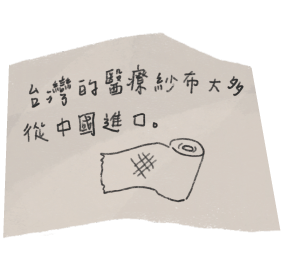 台灣的醫療紗布大多
從中國進口。